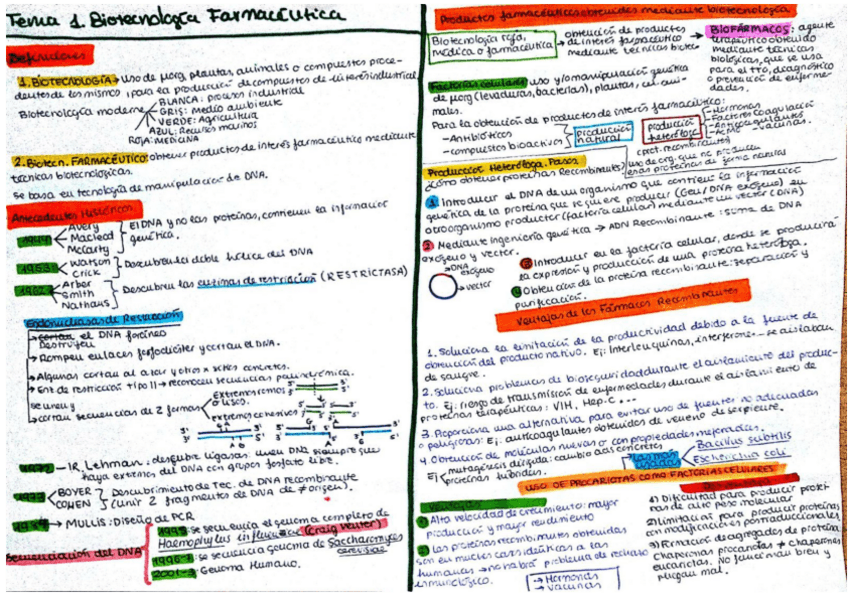 Tema 1. Biotecnología Farmacéutica
Definiciones
1. BIOTECNOLOGÍA → Uso de µorg, plantas, animales o compuestos proce-
dentes de los mismos, para la producción de compuestos de interés industrial.
Biotecnología moderna
BLANCA: proceso industrial
GRIS: medio ambiente
VERDE: Agricultura
AZUL: Recursos marinos
ROJA: MEDICINA
2. Biotecn. FARMACÉUTICO: obtener productos de interés farmacéutico mediante
técnicas biotecnológicas.
Se basa en tecnología de manipulación de DNA.
Antecedentes Históricos
1944
Avery
Macleod
McCarty
El DNA y no las proteínas, contienen la información
genética.
1953
Watson
Crick
Descubren la doble hélice del DNA
Arber
Smith
Nathans
Descubren las enzimas de restricción (RESTRICTASA)
Endonucleasas de Restricción
→ cortan el DNA foráneo
Destruyen
→ Rompen enlaces fosfodiéster y cortan el DNA.
→ Algunas cortan al azar y otras x sitios concretos.
→ Ent. de restricción tipo II → reconocen secuencias palindrómica.
se unen y
cortan secuencias de 2 formas
extremos romos
o liso.
extremos cohesivos
5' 3'
3' 5'
– IR. Lehman: descubre ligasas: unen DNA siempre que
haya extremos del DNA con grupos fosfato libre.
1973
BOYER
COHEN
Descubrimiento de Tec. de DNA recombinante
(unir 2 fragmentos de DNA de ≠ origen).
→ MULLIS: Diseño de PCR
Secuenciación del DNA
1995: se secuencia el genoma completo de
Haemophylus influenzae (Craig Venter)
1996: se secuencia genoma de Saccharomyces
cerevisiae
2001: Genoma Humano.
Productos farmacéuticos obtenidos mediante biotecnología
Biotecnología roja,
médica o farmacéutica
→ obtención de productos
de interés farmacéutico
mediante técnicas biotec
→ BIOFÁRMACOS: agente
terapéutico obtenido
mediante técnicas
biológicas, que se usa
para el tto, diagnóstico
o prevención de enferme-
dades.
Factorías celulares: uso y/o manipulación genética
de µorg (levaduras, bacterias), plantas, en ani-
males.
Para la obtención de productos de interés farmacéutico:
– Antibióticos
– compuestos bioactivos
producción
natural
producción
heteróloga
cprot. recombinantes
– Hormonas
– Factores coagulación
– Anticoagulantes
– AcMo – Vacunas.
uso de org. que no producen
esas proteínas de forma natural
Producción Heteróloga. Pasos
¿Cómo obtener proteínas Recombinantes?
1 Introducir el DNA de un organismo que contiene la información
genética de la proteína que se quiere producir (Gen/DNA exógeno) en
otro organismo productor (factoría celular) mediante un vector (DNA)
2 Mediante ingeniería genética → ADN Recombinante: suma de DNA
exógeno y vector.
→ DNA
exógeno
→ vector
3 Introducir en la factoría celular, donde se producirá
la expresión y producción de una proteína heteróloga.
4 Obtención de la proteína recombinante: separación y
purificación.
Ventajas de los Fármacos Recombinantes
1. Soluciona la limitación de la productividad debido a la fuente de
obtención del producto nativo. Ej: Interleuquinas, interferones – se aislaban
de sangre.
2. Soluciona problemas de bioseguridad durante el aislamiento del produc-
to. Ej: riesgo de transmisión de enfermedades durante el aislamiento de
proteínas terapéuticas: VIH, Hep. C ...
3. Proporciona una alternativa para evitar uso de fuentes no adecuadas
o peligrosas: Ej: anticoagulantes obtenidos de veneno de serpiente.
4. Obtención de moléculas nuevas o con propiedades mejoradas.
Ej
mutagénesis dirigida: cambio aas concretos
proteínas híbridas.
Las más
usadas
Bacillus subtilis
Escherichia coli
USO DE PROCARIOTAS COMO FACTORÍAS CELULARES
Ventajas
1) Alta velocidad de crecimiento: mayor
producción y mayor rendimiento
2) Las proteínas recombinantes obtenidas
son en muchos casos idénticas a las
humanas → no habrá problema de rechazo
inmunológico.
→ Hormonas
→ Vacunas
Desventajas
1) Dificultad para producir proteí-
nas de alto peso molecular
2) Limitación para producir proteínas
con modificaciones postraduccionales
3) Formación de agregados de proteína
chaperonas procariotas ≠ chaperonas
eucariotas. No funcionan bien y
pliegan mal.